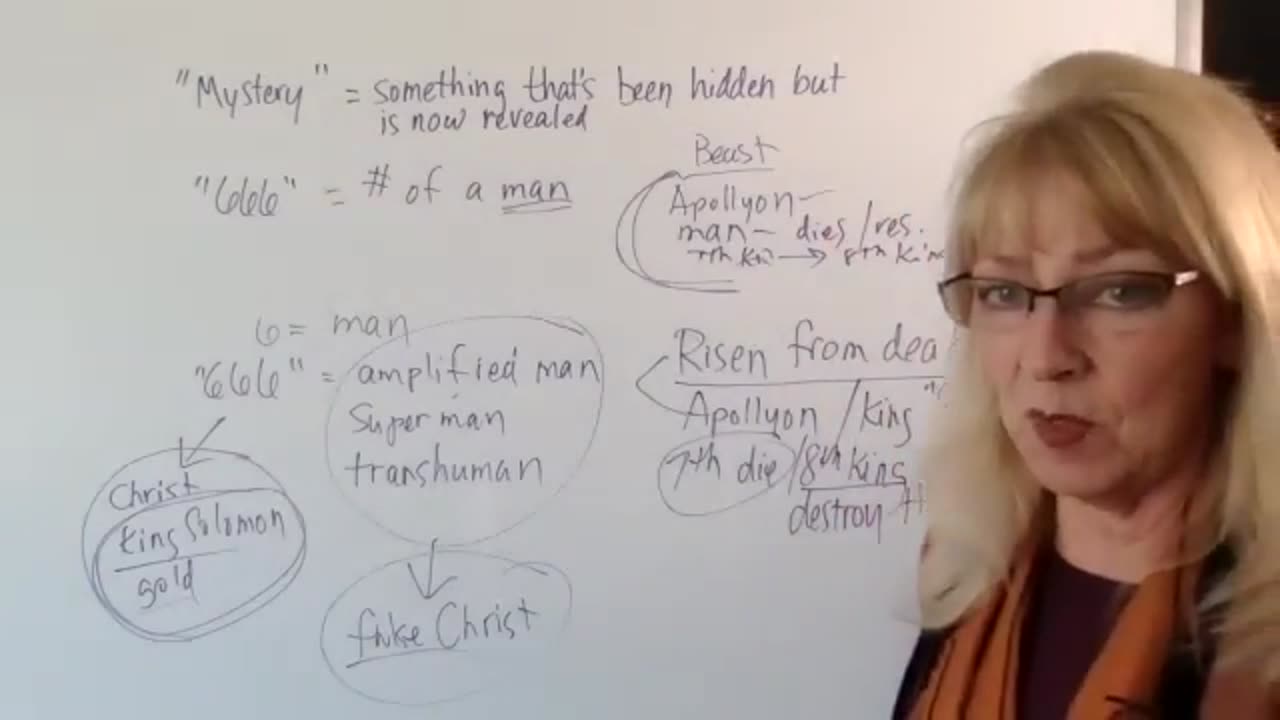 "Mystery" = something that's been hidden but
is now revealed
"666" = # of a man
Beast
Apollyon-
man- dies/res.
7th Ki → 8th Kin
6 = man
"666" = amplified man
Super man
transhuman
Christ
King Solomon
gold
fake Christ
Risen from dea
Apollyon / King
7th die/8th King
destroy